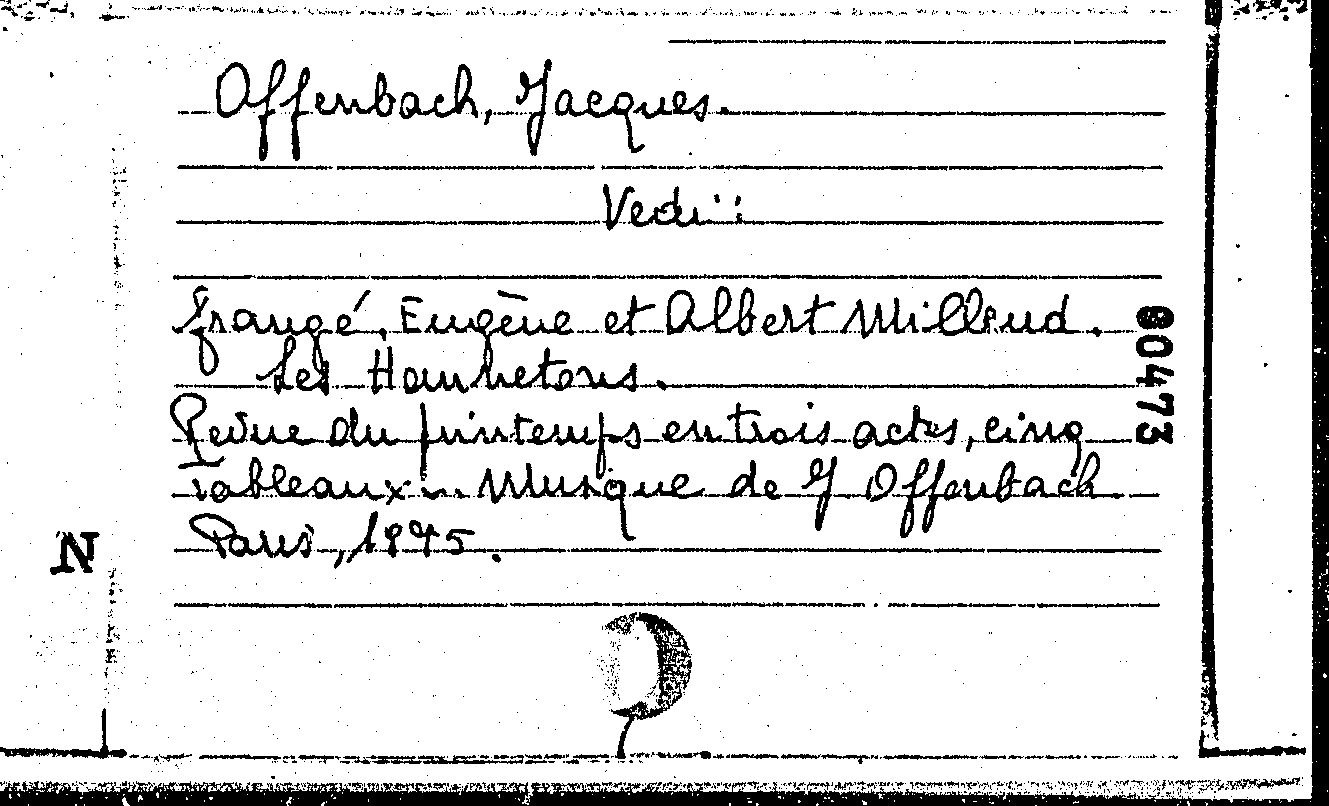 Offenbach, Jacques.
Vedi:
Grangé, Eugène et Albert Millaud.
Les Hannetons.
Revue du printemps en trois actes, cinq
tableaux ... Musique de J Offenbach
Paris, 1875.
00473
N